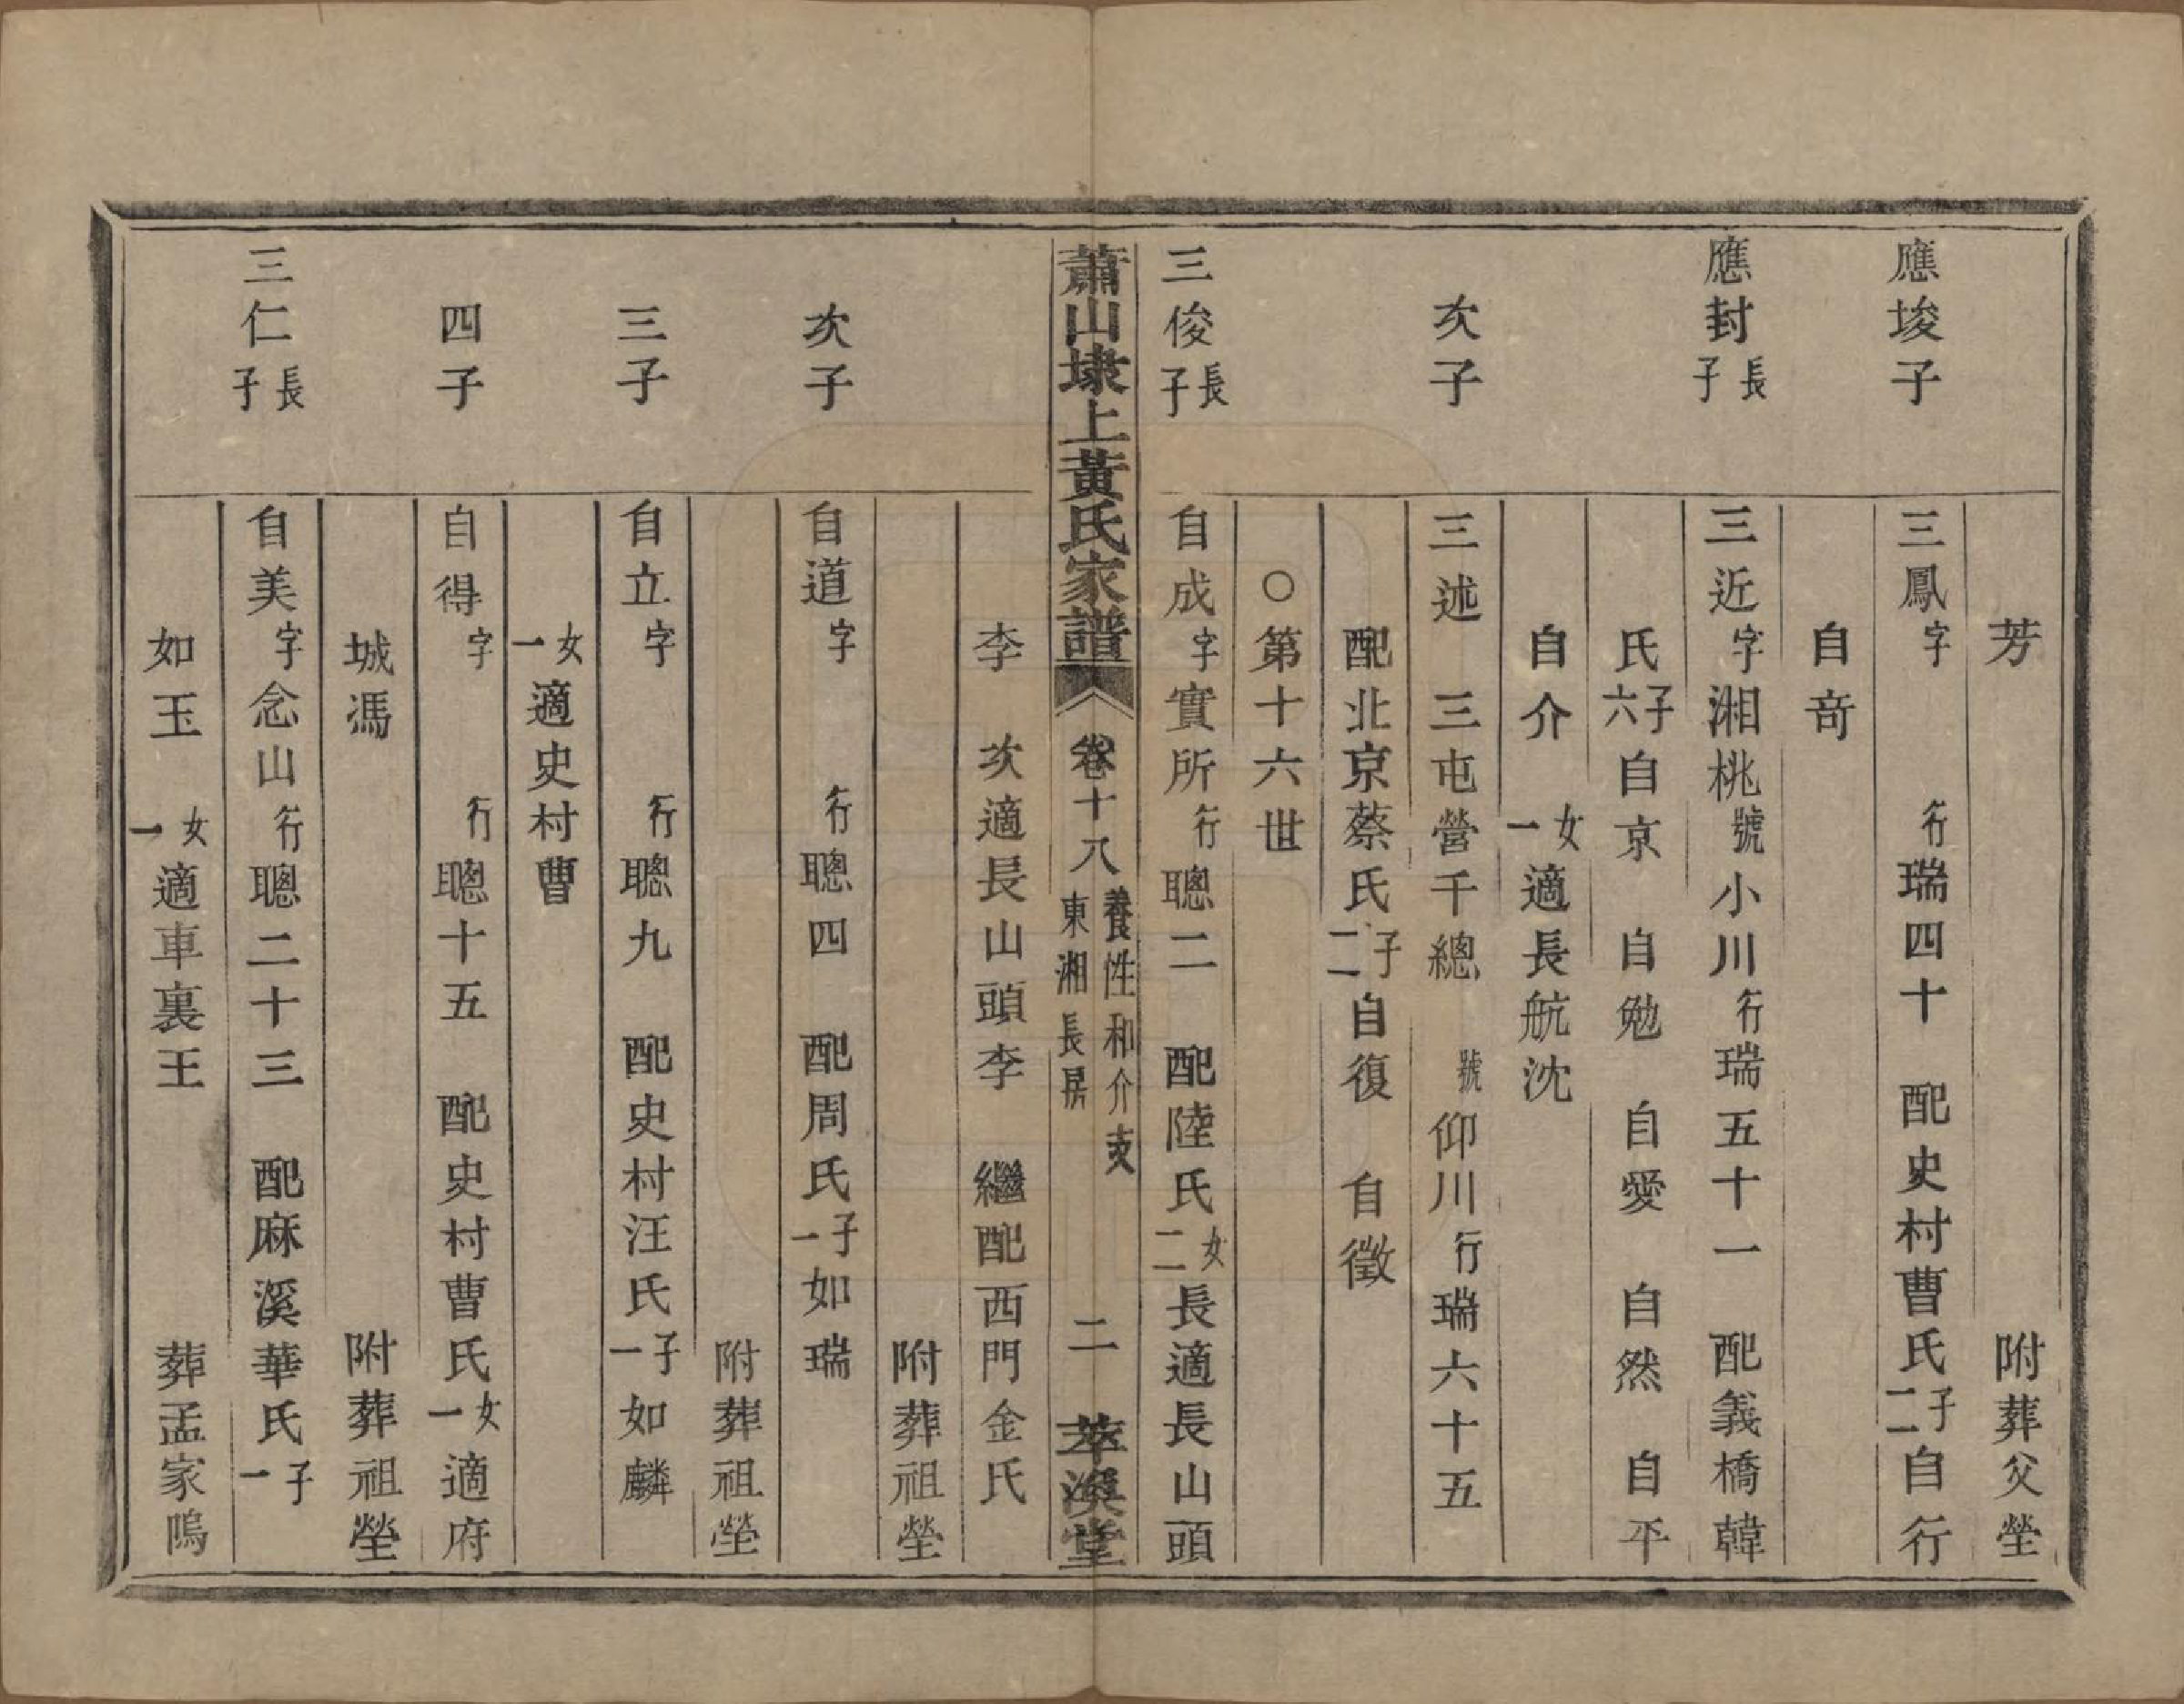 芳 附葬父塋
應埈子 三鳳字 行瑞四十 配史村曹氏子二自行
自竒
應封長子 三近字湘桃號小川行瑞五十一 配義橋韓
氏子六自京 自勉 自愛 自然 自平
自介 女一適長航沈
次子 三述 三屯營千總 號仰川行瑞六十五
配北京蔡氏子二自復 自徵
○第十六世
三俊長子 自成字實所行聰二 配陸氏女二長適長山頭
蕭山埭上黃氏家譜 卷十八 養性和介支 東湘長房 二 萃渙堂
李 次適長山頭李 繼配西門金氏
附葬祖塋
次子 自道字 行聰四 配周氏子一如瑞
附葬祖塋
三子 自立字 行聰九 配史村汪氏子一如麟
女一適史村曹
四子 自得字 行聰十五 配史村曹氏女一適府
城馮 附葬祖塋
三仁長子 自美字念山行聰二十三 配麻溪華氏子一
如玉 女一適車裏王 葬孟家隖